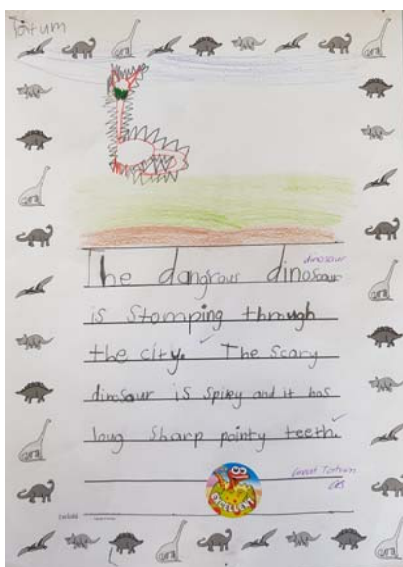 Tatum
dinosaur
The dangrous dinosaur
is Stomping through
the city. The Scary
dinosaur is Spiky and it has
long Sharp pointy teeth.
Great Tatum
EXCELLENT